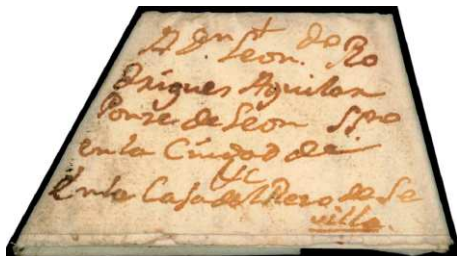 A Dn
Leon. de Ro
drigues Aguilar
Ponze de Leon
en la Ciudad de
en la Casa del Pero de Se
villa.